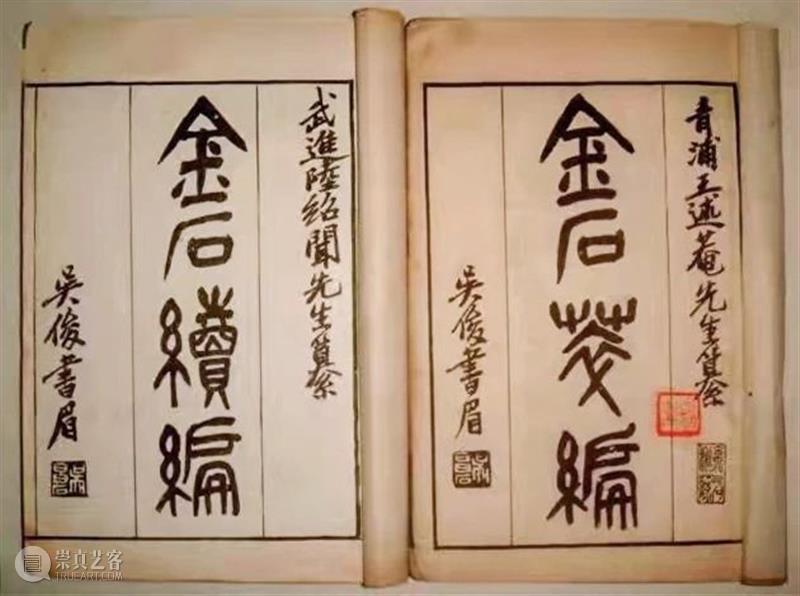 青浦王述菴先生纂
金石萃編
吳俊書眉
武進陸紹聞先生纂
金石續編
吳俊書眉
崇真艺客